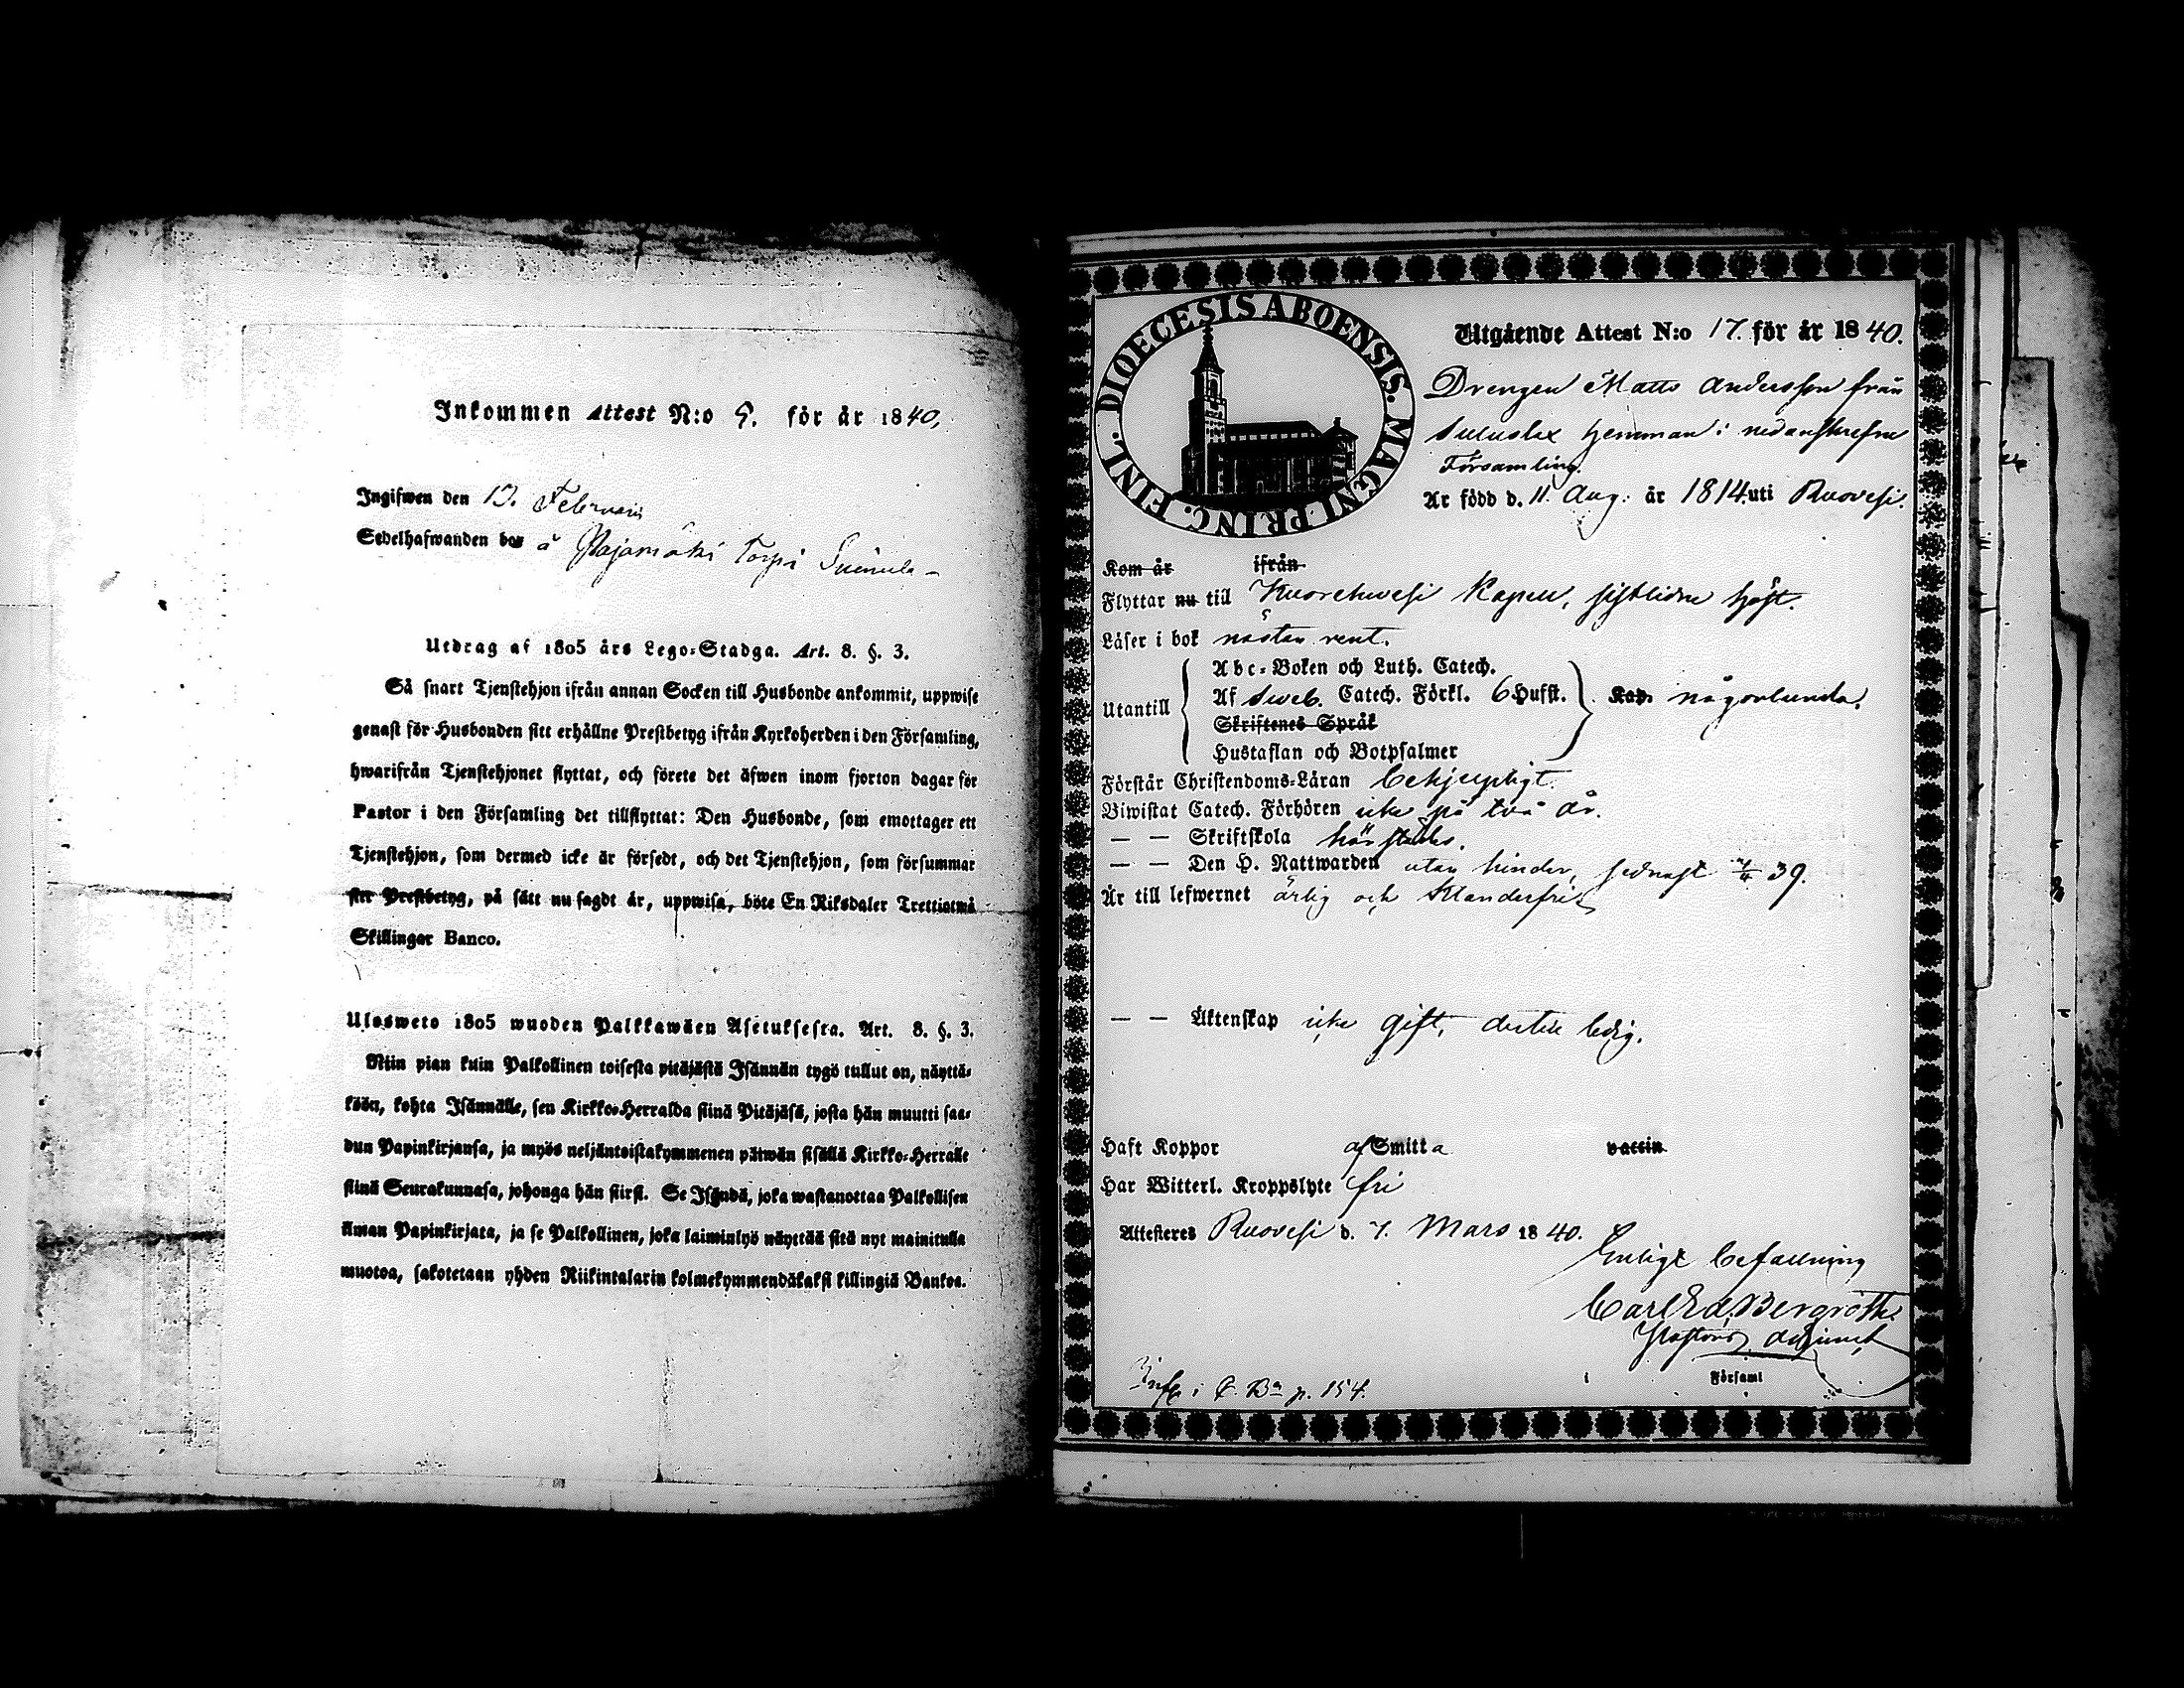 Inkommen Attest N:o 9. för år 1840,
Ingifwen den 13. Februarii
Sedelhafwanden bor å Pajamäki Torp i Suinula
Utdrag af 1805 års Lego-Stadga. Art. 8. §. 3.
Så snart Tjenstehjon ifrån annan Socken till Husbonde ankommit, uppwise
genast för Husbonden sitt erhållne Prestbetyg ifrån Kyrkoherden i den Församling,
hwarifrån Tjenstehjonet flyttat, och förete det äfwen inom fjorton dagar för
Pastor i den Församling det tillflyttat: Den Husbonde, som emottager ett
Tjenstehjon, som dermed icke är försedt, och det Tjenstehjon, som försummar
sitt Prestbetyg, på sätt nu sagdt är, uppwisa, böte En Riksdaler Trettiotwå
Skillingar Banco.
Ulosweto 1805 wuoden Palkkawäen Asetuksesta. Art. 8. §. 3.
Niin pian kuin Palkollinen toisesta pitäjästä Isännän tygö tullut on, näyttä-
köön, kohta Isännälle, sen Kirkko-Herralda siinä Pitäjäsä, josta hän muutti saa-
dun Papinkirjansa, ja myös neljäntoistakymmenen päiwän sisällä Kirkko-Herralle
siinä Seurakunnasa, johonga hän siirsi. Se Isändä, joka wastanottaa Palkollisen
ilman Papinkirjata, ja se Palkollinen, joka laiminlyö näyttää sitä nyt mainitulla
muotoa, sakotetaan yhden Riikintalarin kolmekymmendäkaksi killingiä Bankoa.
DIOECESIS ABOENSIS. MAGNI PRINC. FINL.
Utgående Attest N:o 17. för år 1840.
Drengen Matts Andersson från
hemman i nedanskrefne
Församling.
Är född d. 11 Aug. år 1814 uti Ruovesi.
Kom år ifrån
Flyttar nu till Kuorehwesi Kapell, sistlidne höst.
Läser i bok nästan rent.
Abc-Boken och Luth. Catech.
Utantill Af Sweb. Catech. Förkl. 6 Hufst. Kap. någorlunda.
Skriftenes Språk
Hustaflan och Botpsalmer
Förstår Christendoms-Läran behjelpligt.
Biwistat Catech. Förhören icke på två år.
— — Skriftskola härstädes.
— — Den H. Nattwarden utan hinder, sednast 39.
Är till lefwernet ärlig och klanderfri
— — Äktenskap icke gift, dertill ledig.
Haft Koppor af Smitta vaccin
Har Witterl. Kroppslyte fri
Attesteras Ruovesi d. 7. Mars 1840.
Enligt befallning
Carl Ed. Bergroth
Pastors adjunct
i Församl
Infl. i C. Bn p. 154.